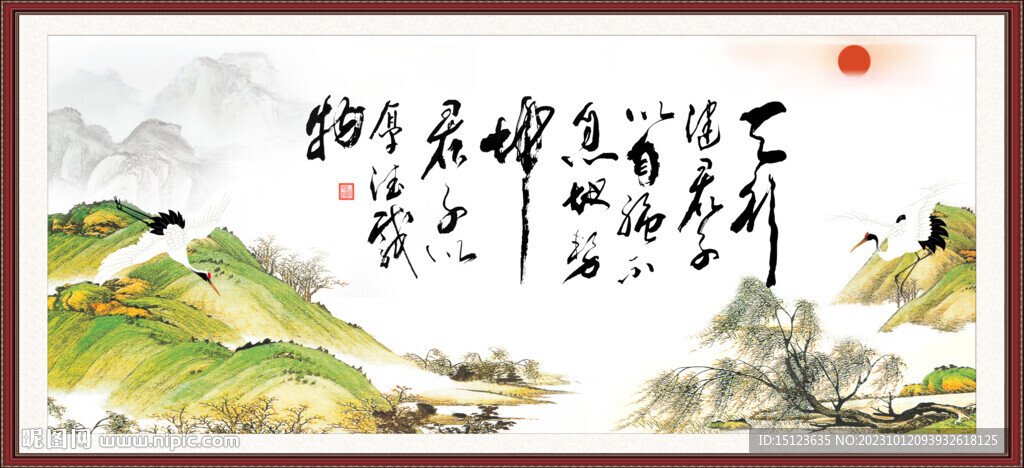 天行
健君子
以自强不
息地势
坤
君子以
厚德载
物
昵图网 www.nipic.com
ID:15123635 NO:20231012093932618125